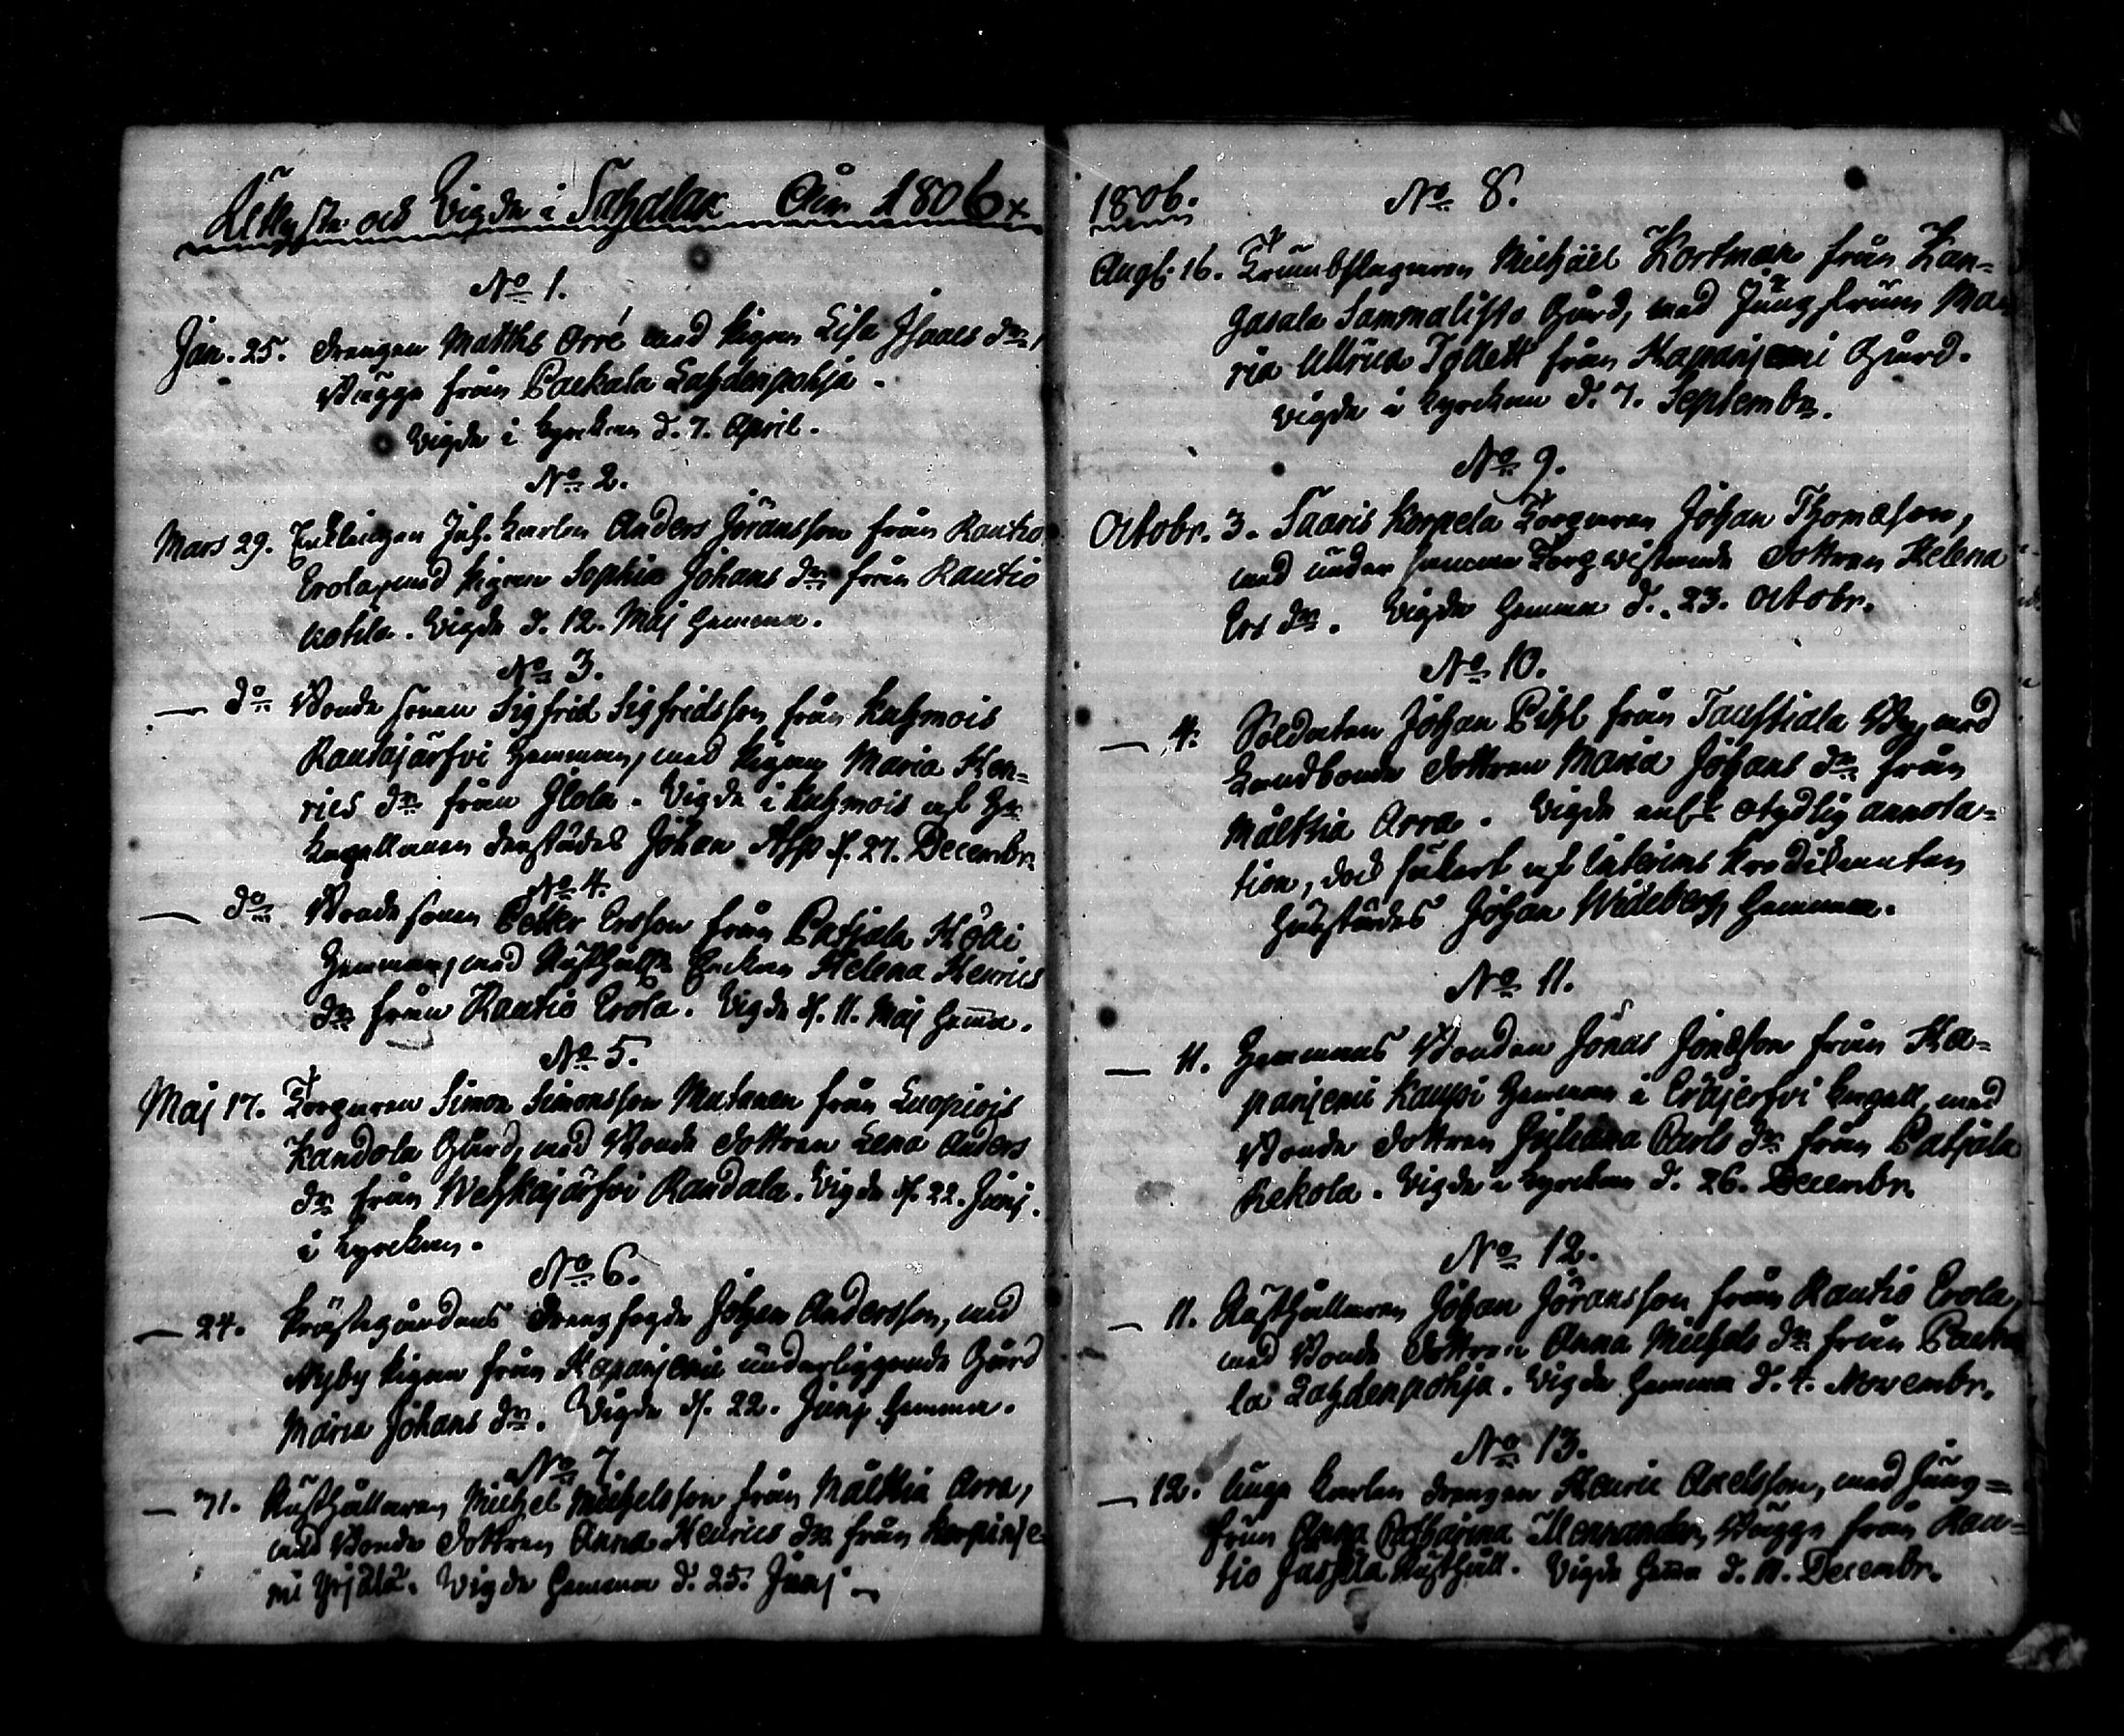 Lÿste och Vigde i Sahalax Åhr 1806
No 1.
Jan. 25. Drengen Matths Orre med Pigan Lisa Isaacs dr,
Bägge från Packala Lahdenpohja.
Vigde i Kyrckan d. 7. April.
No 2.
Mars 29. Enklingen Anders Jöransson från Rautio
Erola, med Pigan Sophia Johans dr från Rautio
. Vigde d. 12. Maj hemma.
No 3.
— do Bonde sonen Sigfrid Sigfridsson från Kuhmois
Rautajärfvi Hemman, med Pigan Maria Hen-
rics dr från Ilola. Vigde i Kuhmois af
Capellanen derstädes Johan Asp d. 27. Decembr.
No 4.
— do Bonde sonen Petter Ersson från Patjala Hölli
Hemman, med Rusthålls Enckan Helena Henrics
dr från Rautio Erola. Vigde d. 11. Maj hema.
No 5.
Maj 17. Torparen Simon Simonsson Mutanen från Luopiois
Kandola Gård, med Bonde dottren Lena Anders
dr från Wehkajärfvi Randala. Vigde d. 22. Junj.
i Kyrckan.
No 6.
— 24. Prästegårdens Drengfogde Johan Andersson, med
Nyby Pigan från Hapanjemi underliggende Gård
Maria Johans dr. Vigde d. 22. Junj hemma.
No 7
— 71. Rusthållaren Michel Michelsson från Mälkia Arra,
med Bonde dottren Anna Henrics dr från Korpinje
mi Yrjälä. Vigde hemma d. 25. Junj —
1806.
No 8.
Aug. 16. Trumbslagaren Michäel Kortman från Kan-
gasala Sammalisto Gård, med Jungfrun Ma
ria Ullrica Tollett från Hapanjemi Gård.
Vigde i Kyrckan d. 7. Septembr.
No 9.
Octobr. 3. Saaris Korpela Torparen Johan Thomasson,
med under samma Torp vistande Dottren Helena
Ers dr. Vigde hemma d. 23. Octobr.
No 10.
— 4. Soldaten Johan Pihl från Taustiala By, med
Landbonde dottren Maria Johans dr från
Mälkia Arra. Vigde enl. otydlig annota-
tion, doch säkert af Interims Predikanten
härstädes Johan Wideberg, hemma.
No 11.
— 11. Hemmans Bonden Jonas Jonasson från Ha-
panjemi Kaupi Hemman i Eräjerfvi Capell, med
Bonde dottren Juliana Carls dr från Patjala
Rekola. Vigde i Kyrckan d. 26. Decembr.
No 12.
— 11. Rusthållaren Johan Jöransson från Rautio Erola,
med Bonde dottren Anna Michels dr från Packa
la Lahdenpohja. Vigde hemma d. 4. Novembr.
No 13.
— 12. Unga Karlen Drengen Henric Axelsson, med Jung-
frun Anna Catharina Mennander, Bägge från Rau-
tio Jaskila Rusthåll. Vigde hema d. 11. Decembr.